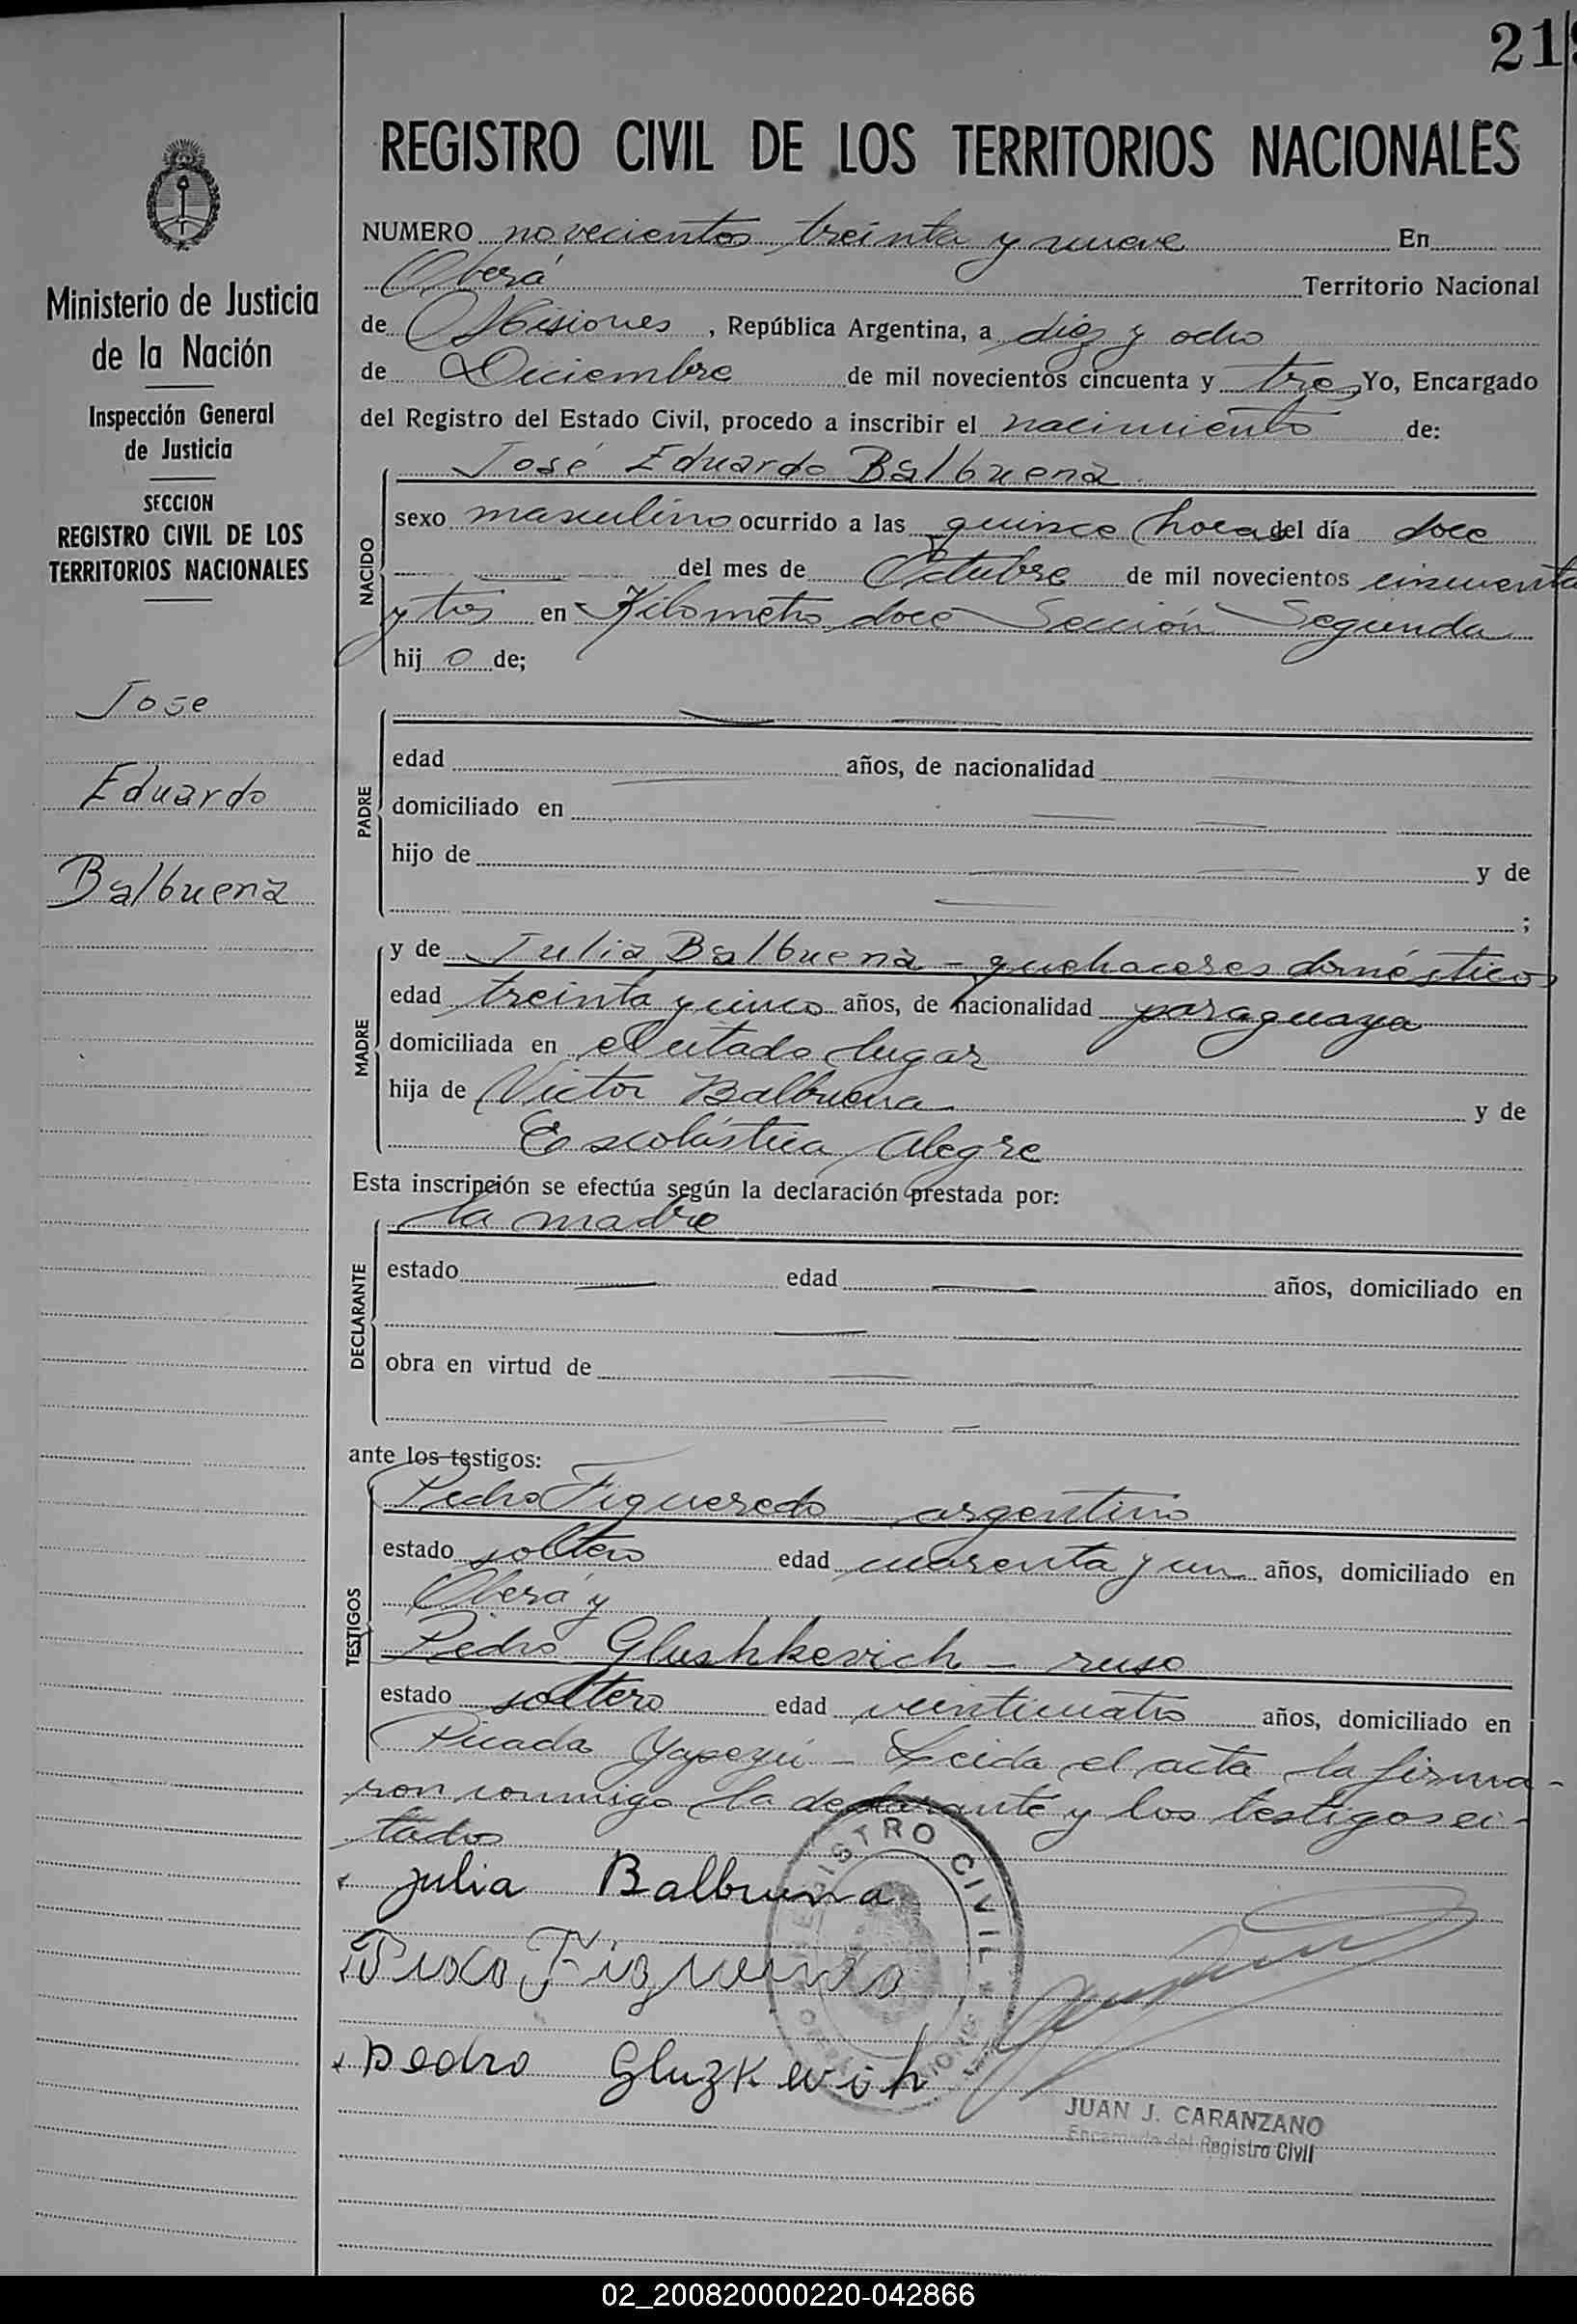 21
REGISTRO CIVIL DE LOS TERRITORIOS NACIONALES
Ministerio de Justicia
de la Nación
Inspección General
de Justicia
SECCION
REGISTRO CIVIL DE LOS
TERRITORIOS NACIONALES
Jose
Eduardo
Balbuena
NUMERO novecientos treinta y nueve En
Oberá Territorio Nacional
de Misiones, República Argentina, a diez y ocho
de Diciembre de mil novecientos cincuenta y tres Yo, Encargado
del Registro del Estado Civil, procedo a inscribir el nacimiento de:
NACIDO
José Eduardo Balbuena
sexo masculino ocurrido a las quince horas del día doce
del mes de Octubre de mil novecientos cincuenta
y tres en Kilometro doce Sección Segunda
hij o de;
PADRE
edad años, de nacionalidad
domiciliado en
hijo de y de
;
MADRE
y de Julia Balbuena - quehaceres domésticos
edad treinta y cinco años, de nacionalidad paraguaya
domiciliada en el citado lugar
hija de Victor Balbuena y de
Escolástica Alegre
Esta inscripción se efectúa según la declaración prestada por:
DECLARANTE
la madre
estado edad años, domiciliado en
obra en virtud de
ante los testigos:
TESTIGOS
Pedro Figueredo argentino
estado soltero edad cuarenta y un años, domiciliado en
Oberá y
Pedro Glushkevich - ruso
estado soltero edad veinticuatro años, domiciliado en
Picada Yapeyú - Leida el acta la firma-
ron conmigo la declarante y los testigos ci-
tados
Julia Balbuena
Figueredo
Pedro Gluzkevich
REGISTRO CIVIL
JUAN J. CARANZANO
Encargado del Registro Civil
02_200820000220-042866